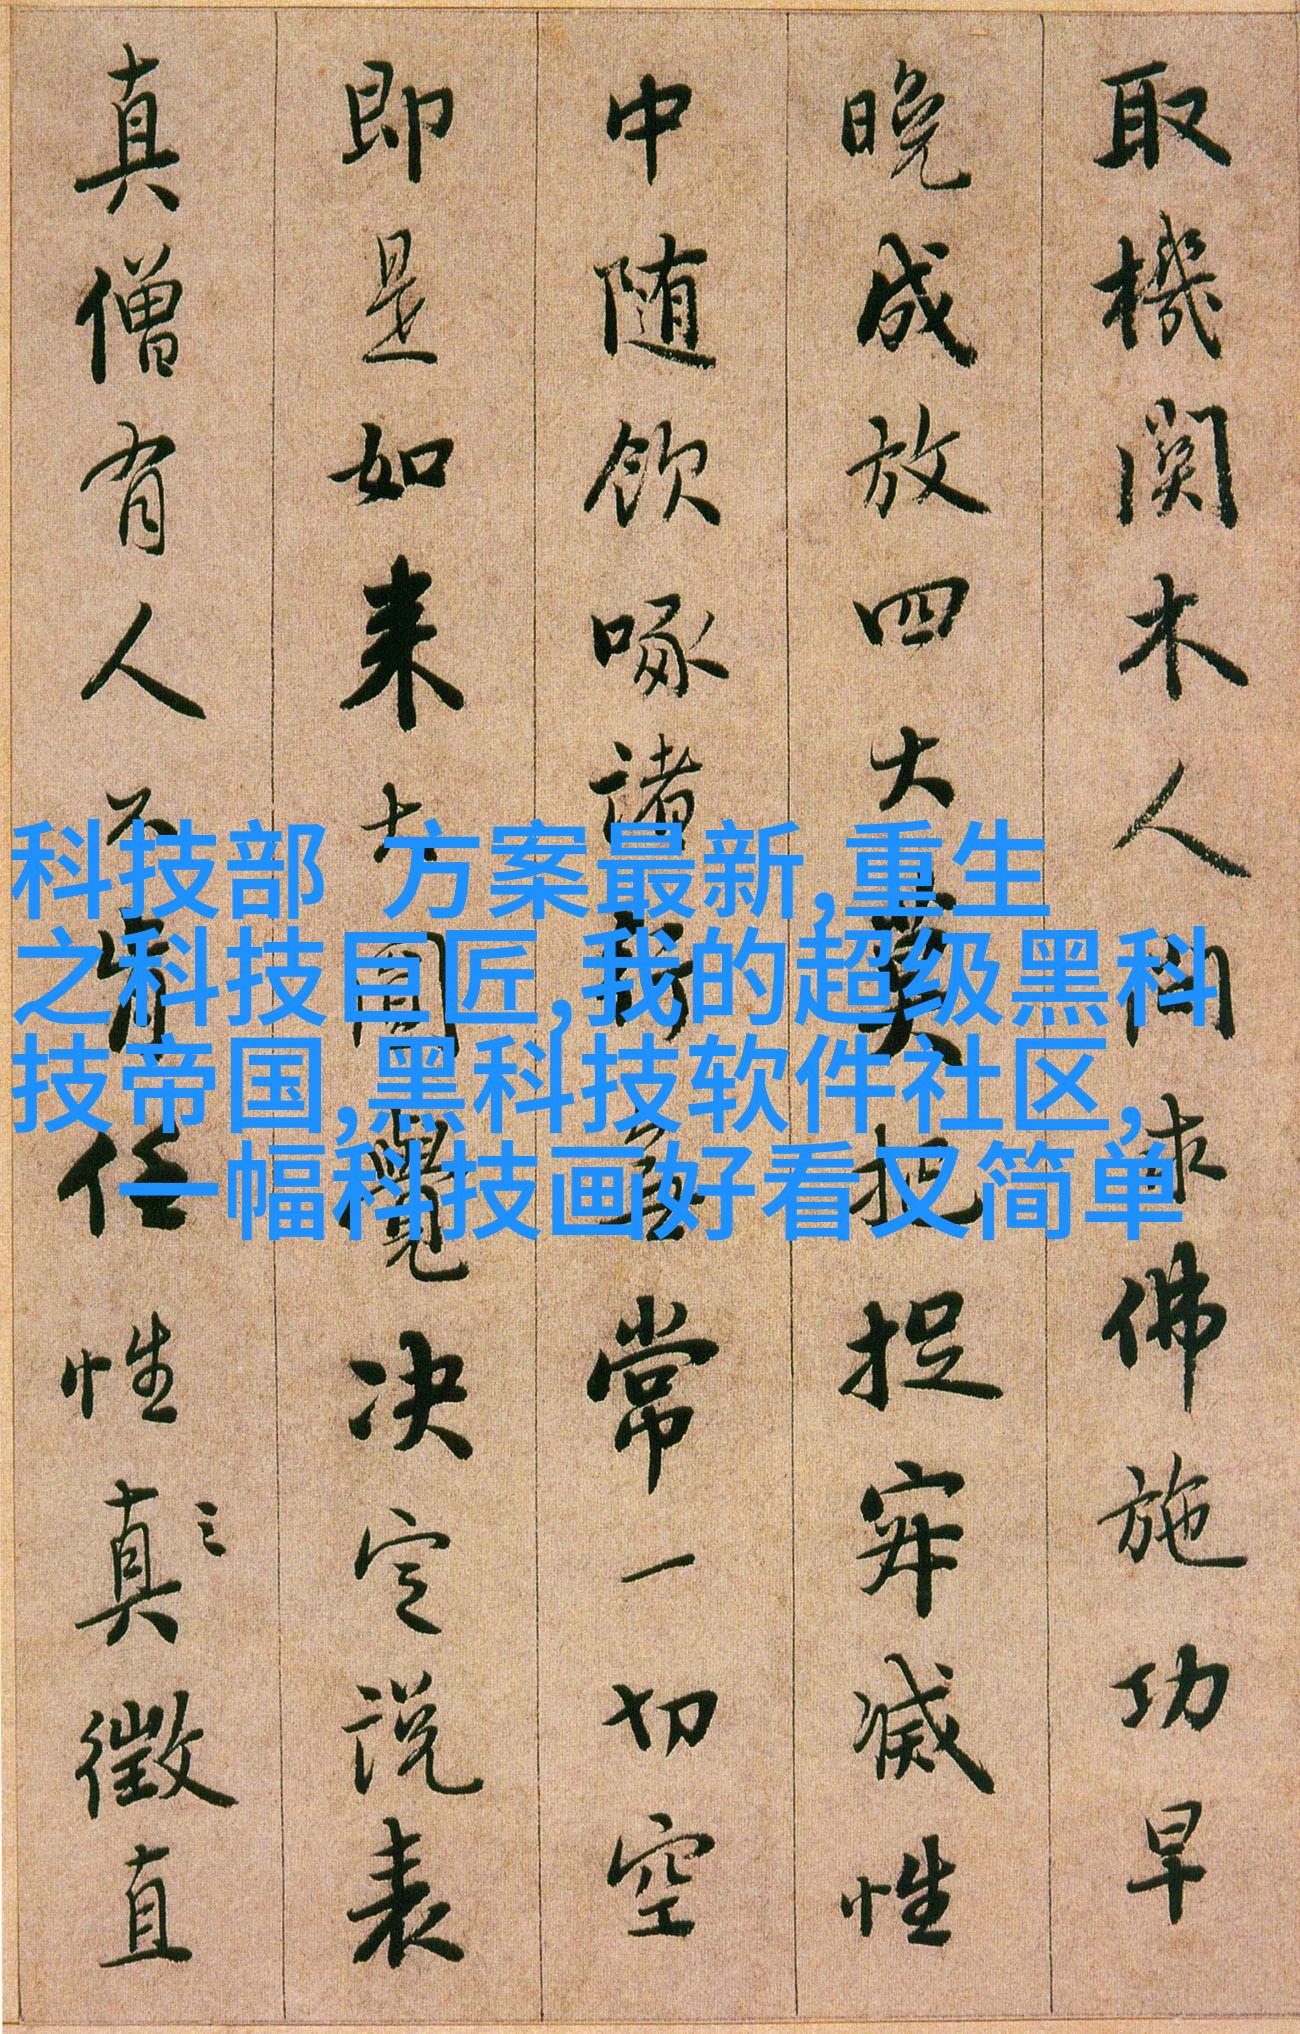 取機関木人問求佛施功早
晚成放四大莫把捉寂滅性
中随飲啄諸行無常一切空
即是如来大圓覺决定説表
真僧有人不肯任性真徵直
科技部 方案最新,重生
之科技巨匠,我的超级黑科
技帝国,黑科技软件社区,
一幅科技画好看又简单